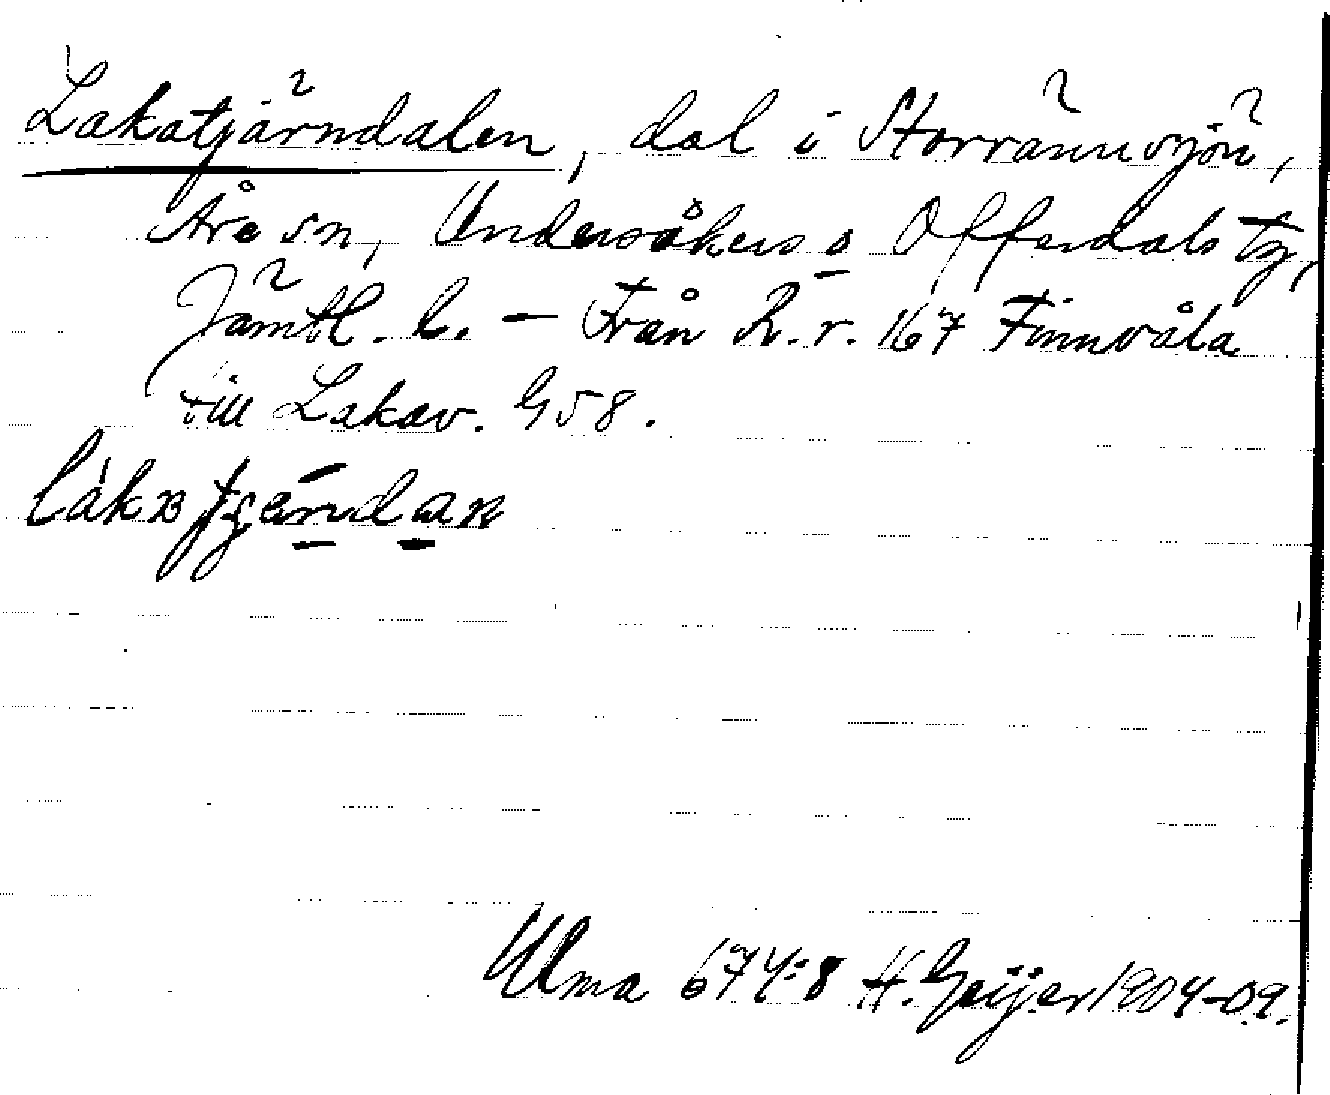 Lakatjärndalen, dal i Storrännsjön,
Åre sn, Undersåkers o Offerdals tg,
Jämtl. l. – Från R.r. 167 Finnvåla
till Lakav. G58.
Ulma 674:8 H. Geijer 1904-09.